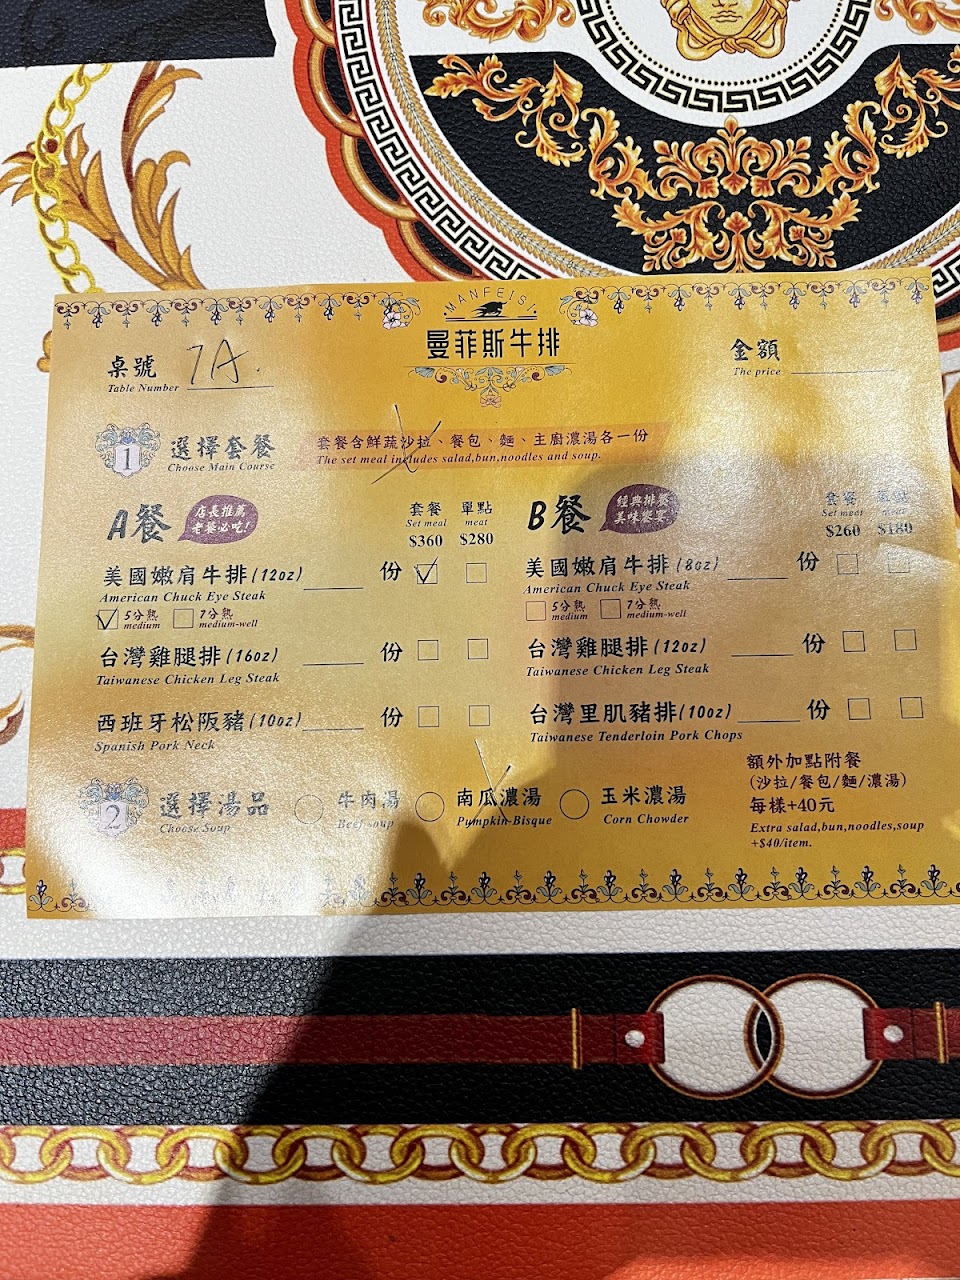 MANFEISI
曼菲斯牛排
桌號 7A.
Table Number
金額
The price
1 選擇套餐
Choose Main Course
套餐含鮮蔬沙拉、餐包、麵、主廚濃湯各一份
The set meal includes salad,bun,noodles and soup.
A餐
店長推薦
老饕必吃!
套餐 單點
Set meal meat
$360 $280
美國嫩肩牛排(12oz) 份
American Chuck Eye Steak
5分熟 7分熟
medium medium-well
台灣雞腿排(16oz) 份
Taiwanese Chicken Leg Steak
西班牙松阪豬(10oz) 份
Spanish Pork Neck
B餐
經典排餐
美味饗宴
套餐 單點
Set meal meat
$260 $180
美國嫩肩牛排(8oz) 份
American Chuck Eye Steak
5分熟 7分熟
medium medium-well
台灣雞腿排(12oz) 份
Taiwanese Chicken Leg Steak
台灣里肌豬排(10oz) 份
Taiwanese Tenderloin Pork Chops
2 選擇湯品
Choose Soup
牛肉湯 南瓜濃湯 玉米濃湯
Beef soup Pumpkin Bisque Corn Chowder
額外加點附餐
(沙拉/餐包/麵/濃湯)
每樣+40元
Extra salad,bun,noodles,soup
+$40/item.